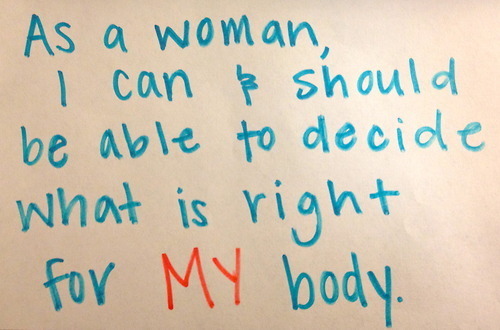 As a woman,
I can & should
be able to decide
what is right
for MY body.